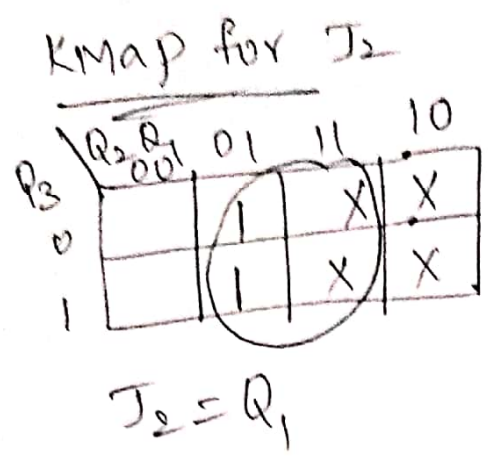 KMap for J₂
Q₂Q₁
00 01 11 10
Q₃
0 1 X X
1 1 X X
J₂ = Q₁